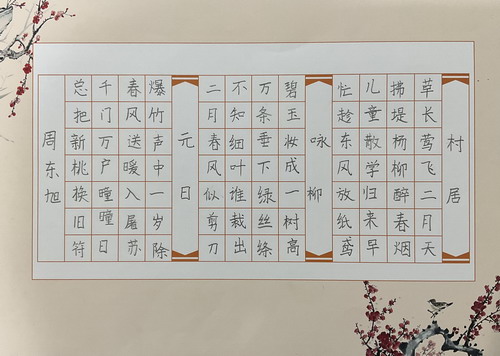 村居
草长莺飞二月天
拂堤杨柳醉春烟
儿童散学归来早
忙趁东风放纸鸢
咏柳
碧玉妆成一树高
万条垂下绿丝绦
不知细叶谁裁出
二月春风似剪刀
元日
爆竹声中一岁除
春风送暖入屠苏
千门万户曈曈日
总把新桃换旧符
周东旭